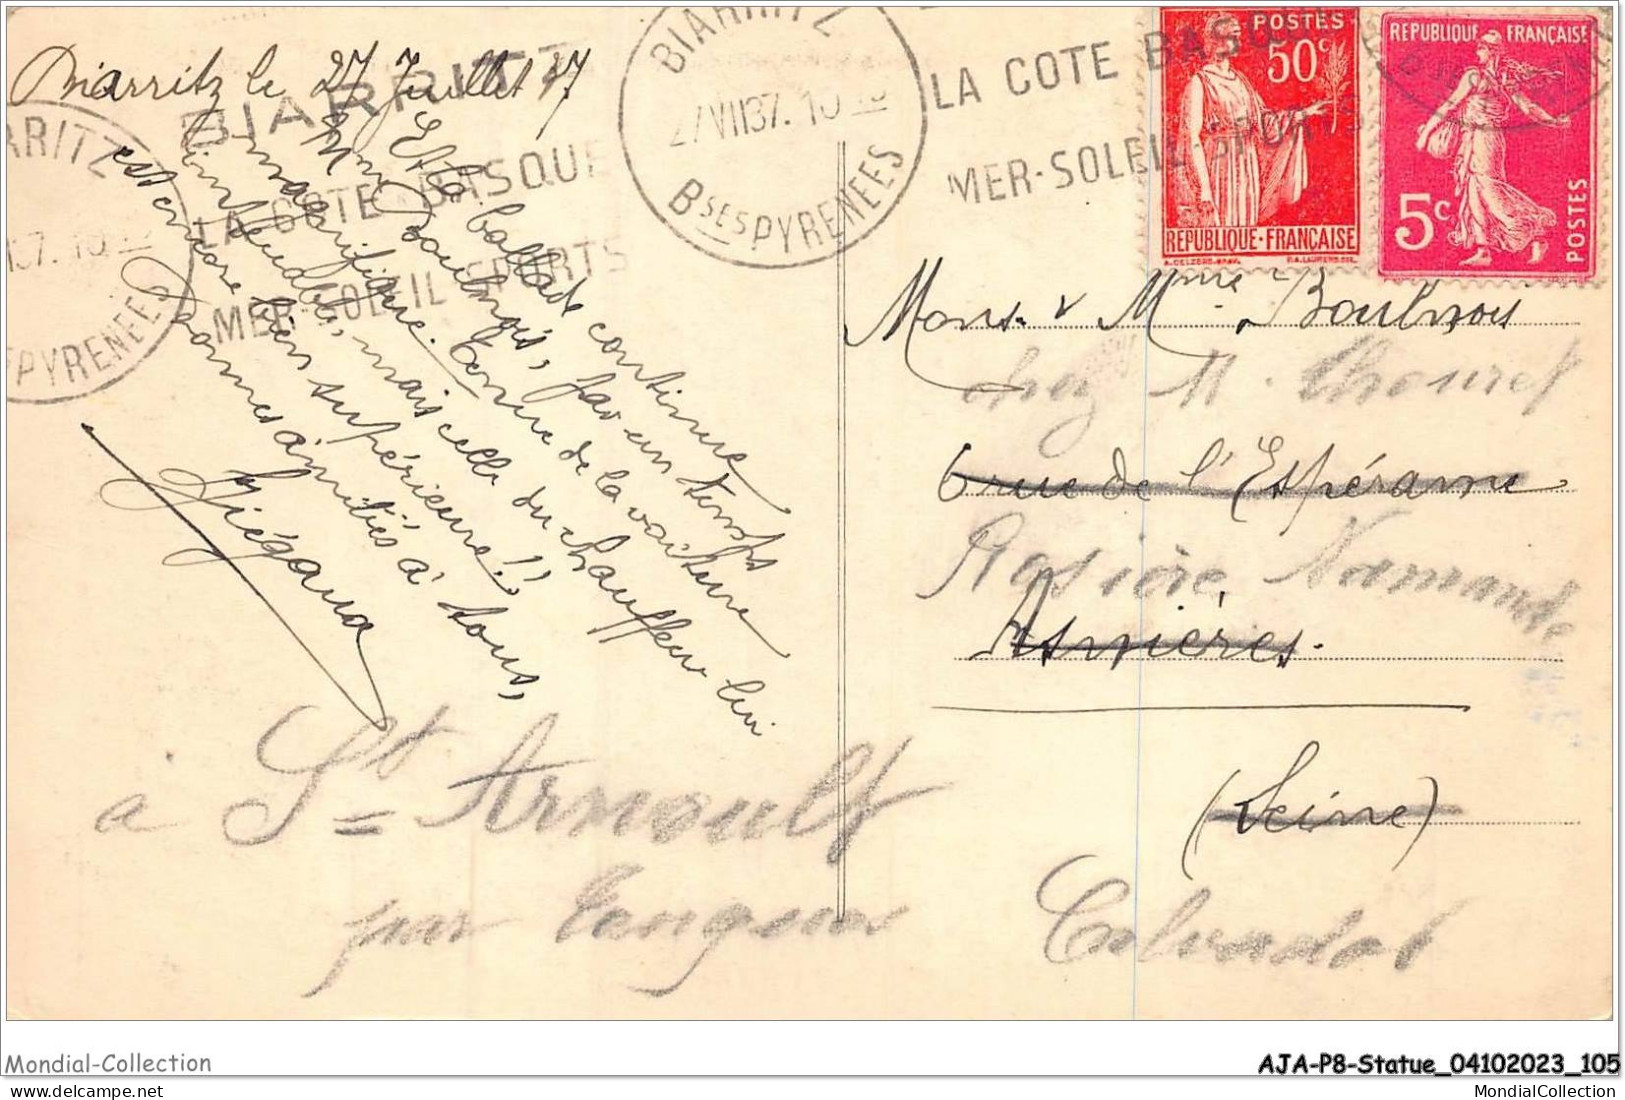 Biarritz le 27 Juillet 37
BIARRITZ
LA COTE BASQUE
MER-SOLEIL-SPORTS
BIARRITZ
27 VII 37. 10
BSES PYRENEES
LA COTE BASQUE
MER-SOLEIL-SPORTS
POSTES
50c
REPUBLIQUE-FRANÇAISE
REPUBLIQUE FRANÇAISE
5c
POSTES
Et la ballade continue
Mme Boulnois, par un temps
magnifique. Tenue de la voiture
mais celle du chauffeur lui
est encore bien supérieure!!
Bonnes amitiés à tous,
Mons. & Mme Boulnois
chez M. Thouret
6 rue de l'Espérance
Rosière Normande
Asnières.
(Seine)
à St Arnoult
par Tougues
Calvados
Mondial-Collection
AJA-P8-Statue_04102023_105
www.delcampe.net
MondialCollection